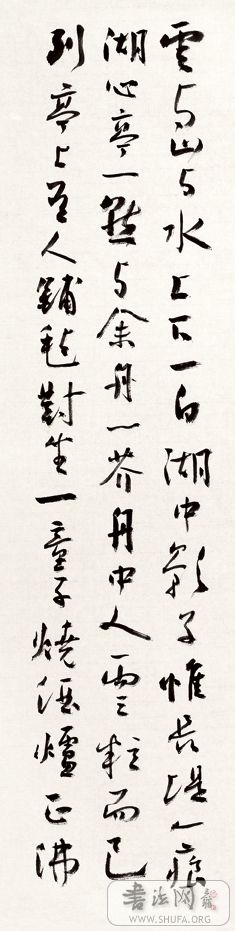 雲与山与水上下一白湖中影子惟長堤一痕
湖心亭一點与余舟一芥舟中人兩三粒而已
到亭上人鋪氈對坐一童子燒酒爐正沸
書法网
WWW.SHUFA.ORG